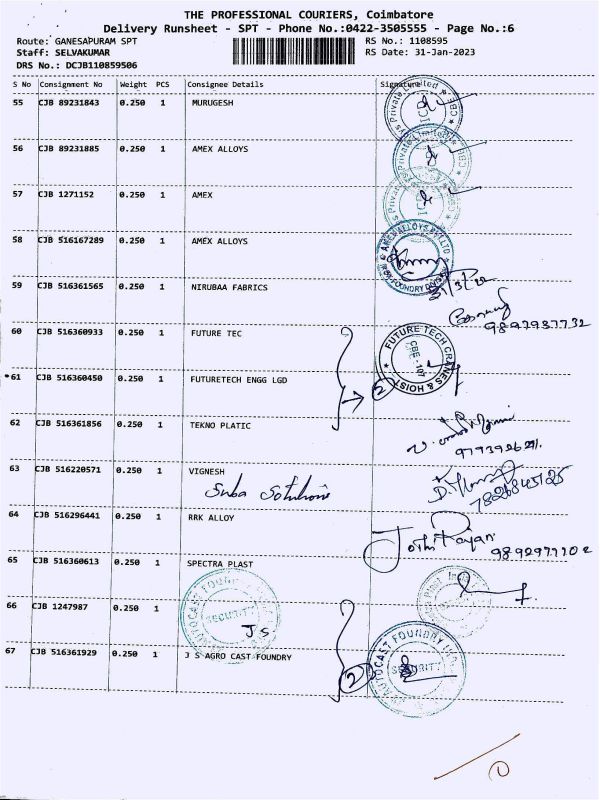 THE PROFESSIONAL COURIERS, Coimbatore
Delivery Runsheet - SPT - Phone No.:0422-3505555 - Page No.:6
Route: GANESAPURAM SPT
RS No.: 1108595
Staff: SELVAKUMAR
RS Date: 31-Jan-2023
DRS No.: DCJB110859506
S No Consignment No Weight PCS Consignee Details Signature
55 CJB 89231843 0.250 1 MURUGESH
56 CJB 89231885 0.250 1 AMEX ALLOYS
57 CJB 1271152 0.250 1 AMEX
58 CJB 516167289 0.250 1 AMEX ALLOYS
59 CJB 516361565 0.250 1 NIRUBAA FABRICS
9897937732
60 CJB 516360933 0.250 1 FUTURE TEC
FUTURE TECH CRANES & HOIST
CBE - 107
61 CJB 516360450 0.250 1 FUTURETECH ENGG LGD
2
62 CJB 516361856 0.250 1 TEKNO PLATIC
63 CJB 516220571 0.250 1 VIGNESH
Suba Solutions
7826845125
64 CJB 516296441 0.250 1 RRK ALLOY
Jothi Rajan
9892977102
65 CJB 516360613 0.250 1 SPECTRA PLAST
66 CJB 1247987 0.250 1
AUTOCAST FOUNDRY
SECURITY
J S
67 CJB 516361929 0.250 1 J S AGRO CAST FOUNDRY
2
AUTOCAST FOUNDRY
SECURITY